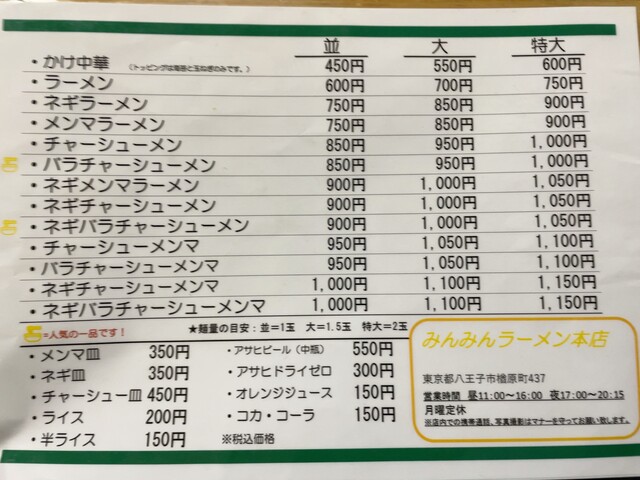 並 大 特大
・かけ中華 （トッピングは海苔と玉ねぎのみです。） 450円 550円 600円
・ラーメン 600円 700円 750円
・ネギラーメン 750円 850円 900円
・メンマラーメン 750円 850円 900円
・チャーシューメン 850円 950円 1,000円
・バラチャーシューメン 850円 950円 1,000円
・ネギメンマラーメン 900円 1,000円 1,050円
・ネギチャーシューメン 900円 1,000円 1,050円
・ネギバラチャーシューメン 900円 1,000円 1,050円
・チャーシューメンマ 950円 1,050円 1,100円
・バラチャーシューメンマ 950円 1,050円 1,100円
・ネギチャーシューメンマ 1,000円 1,100円 1,150円
・ネギバラチャーシューメンマ 1,000円 1,100円 1,150円
=人気の一品です！ ★麺量の目安：並＝1玉 大＝1.5玉 特大＝2玉
・メンマ皿 350円
・ネギ皿 350円
・チャーシュー皿 450円
・ライス 200円
・半ライス 150円
・アサヒビール（中瓶） 550円
・アサヒドライゼロ 300円
・オレンジジュース 150円
・コカ・コーラ 150円
※税込価格
みんみんラーメン本店
東京都八王子市楢原町437
営業時間 昼11:00～16:00 夜17:00～20:15
月曜定休
※店内での携帯通話、写真撮影はマナーを守ってお願い致します。